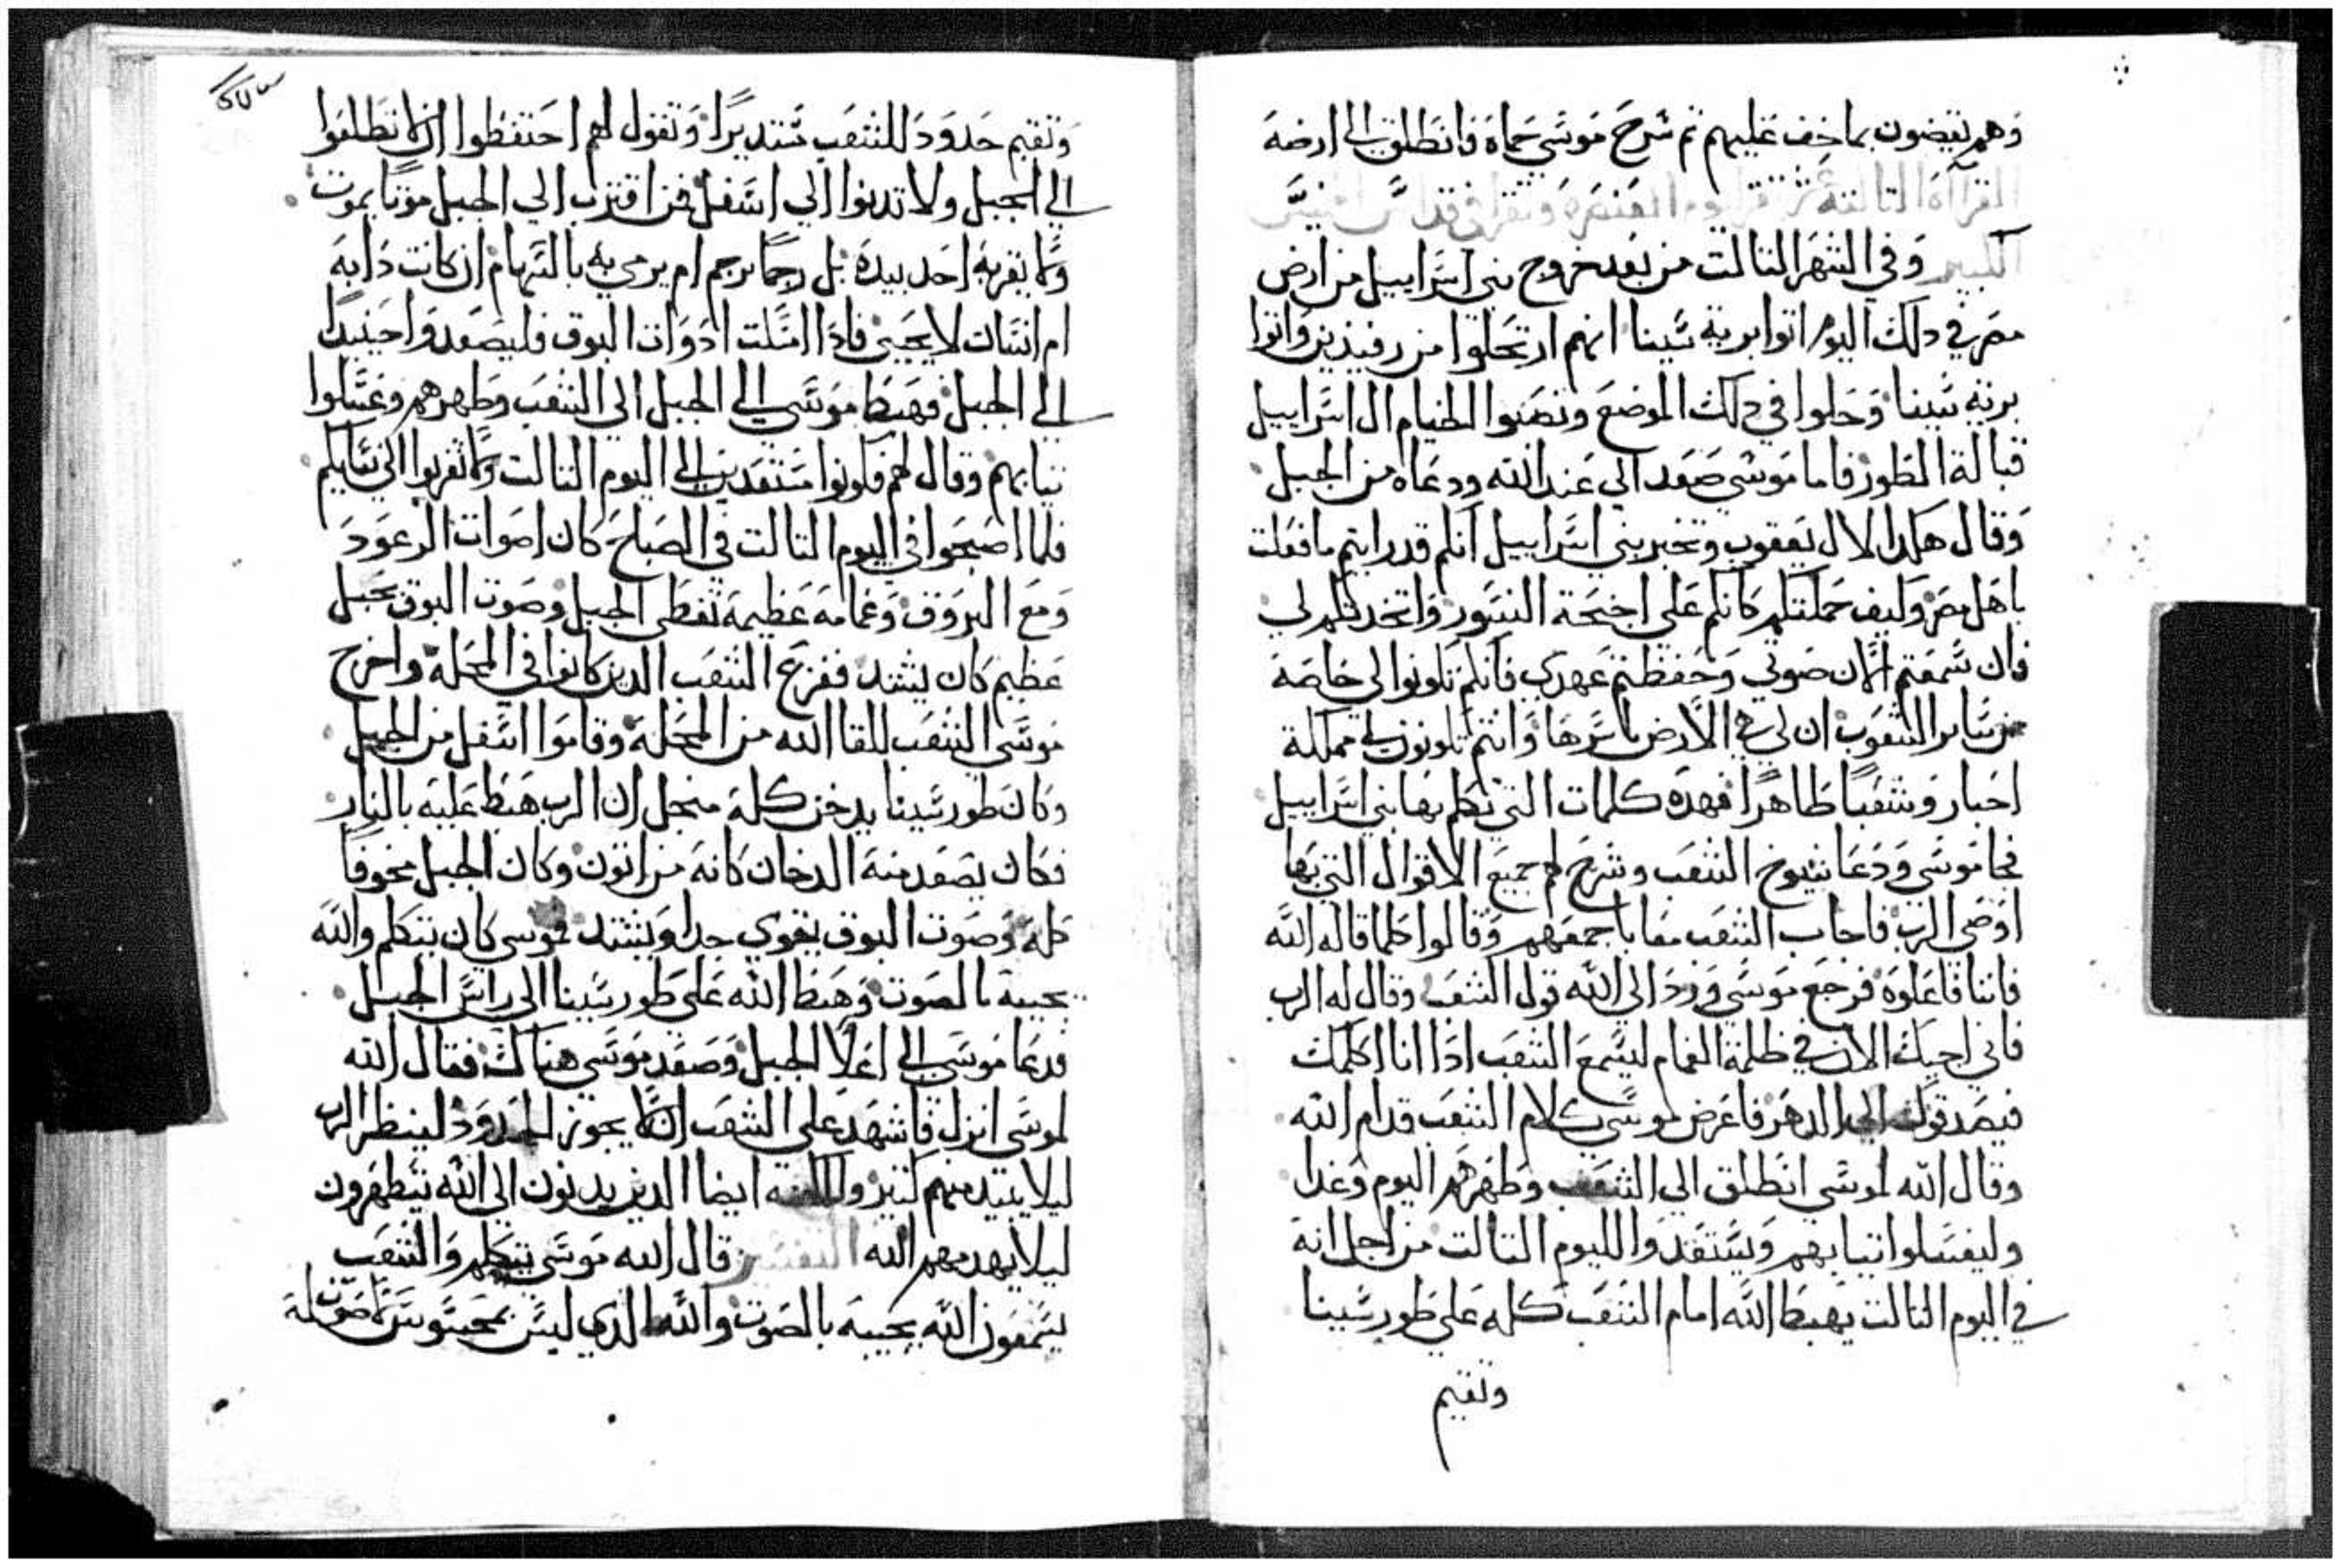 وهم يقضون بما خف عليهم ثم شرح موسي حماه فانطلق الى ارضه
القرآة التالتة تقرا يوم العنصره وتقرا في قداس
الكبير وفي الشهر التالت من بعد خروج بني اسراييل من ارض
مصر في دلك اليوم اتوا برية سينا انهم ارتحلوا من رفيدين واتوا
برية سينا وحلوا في دلك الموضع ونصبوا الخيام ال اسراييل
قبالة الطور فاما موسي صعد الي عند الله ودعاه من الجبل
وقال هكدا لال يعقوب وتخبر بني اسراييل انكم قد رايتم ما فعلت
باهل مصر وكيف حملتكم كانكم علي اجنحة النسور واتخدتكم لي
فان سمعتم الان صوتي وحفظتم عهدي فانكم تكونوا لي خاصة
من ساير الشعوب ان لي هي الارض باسرها وانتم تكونون لي مملكة
احبار وشعبًا طاهرًا فهده كلمات التي تكلم بها بني اسراييل
فجا موسي ودعا شيوخ الشعب وشرح لهم جميع الاقوال التي بها
اوصي الرب فاجاب الشعب معا باجمعهم وقالوا كلما قاله الله
فاننا فاعلوه فرجع موسي ورد الى الله قول الشعب وقال له الرب
فاني اجيك الان في ظلمة الغمام ليسمع الشعب ادا انا اكلمك
فيصدقونك الى الدهر فاعرض موسي كلام الشعب قدام الله
وقال الله لموسي انطلق الي الشعب وطهرهم اليوم وغدا
وليغسلوا تيابهم ويستعدوا لليوم التالت من اجل انه
في اليوم التالت يهبط الله امام الشعب كله علي طور سينا
وتقيم
وتقيم حدود للشعب تستديرًا وتقول لهم احتفظوا ان لا تطلعوا
الى الجبل ولا تدنوا الي اسفل فمن اقترب الي الجبل موتًا يموت
ولا يقربه احد بيده بل رجمًا يرجم ام يرمي به بالسهام ان كانت دابه
ام انسان لا يحيى فادا امسكت ادوات البوق فليصعدوا حينيدًا
الى الجبل فهبط موسي الى الجبل الى الشعب وطهرهم وغسلوا
تيابهم وقال لهم فكونوا مستعدين الى اليوم التالت ولا تقربوا الي نسايكم
فلما اصبحوا في اليوم التالت في الصباح كان اصوات الرعود
ومع البروق وغمامه عظيمه تغطي الجبل وصوت البوق بجبل
عظيم كان يشتد ففزع الشعب الدين كانوا في المحلة واخرج
موسي الشعب للقا الله من المحلة وقاموا اسفل من الجبل
وكان طور سينا يدخن كله من اجل ان الرب هبط عليه بالنار
فكان يصعد منه الدخان كانه من اتون وكان الجبل مخوفًا
كله وصوت البوق يقوي جدا ويشتد فموسي كان يتكلم والله
يجيبه بالصوت وهبط الله على طور سينا الى راس الجبل
فدعا موسي الى اعلا الجبل وصعد موسي هناك فقال الله
لموسي انزل فاشهد علي الشعب ان لا يجوز الحدود لينظر الرب
ليلا يبتد منهم كتير والكهنه ايضا الدين يدنون الي الله يتطهرون
ليلا يهدمهم الله التفسير قال الله موسي يتكلم والشعب
يسمعون الله يجيبه بالصوت والله الدي ليس بمحسوس لا صوت له